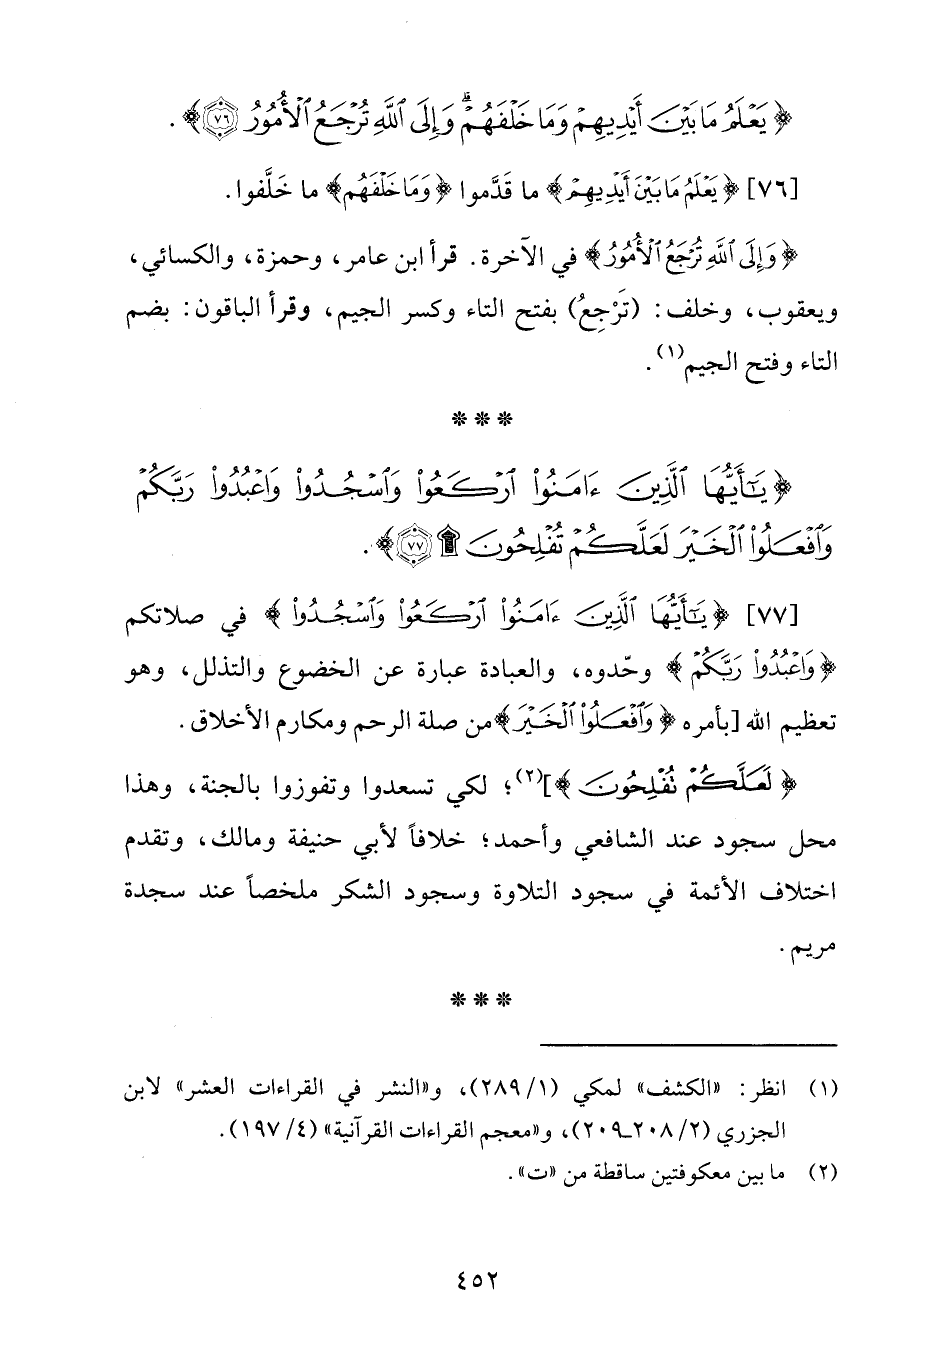 ﴿ يَعْلَمُ مَا بَيْنَ أَيْدِيهِمْ وَمَا خَلْفَهُمْ ۗ وَإِلَى ٱللَّهِ تُرْجَعُ ٱلْأُمُورُ ﴿٧٦﴾ ﴾ .
[٧٦] ﴿ يَعْلَمُ مَا بَيْنَ أَيْدِيهِمْ ﴾ ما قَدَّموا ﴿ وَمَا خَلْفَهُم ﴾ ما خَلَّفوا.
﴿ وَإِلَى ٱللَّهِ تُرْجَعُ ٱلْأُمُورُ ﴾ في الآخرة. قرأ ابن عامر، وحمزة، والكسائي،
ويعقوب، وخلف: (تَرْجِعُ) بفتح التاء وكسر الجيم، وقرأ الباقون: بضم
التاء وفتح الجيم(١).
***
﴿ يَـٰٓأَيُّهَا ٱلَّذِينَ ءَامَنُوا۟ ٱرْكَعُوا۟ وَٱسْجُدُوا۟ وَٱعْبُدُوا۟ رَبَّكُمْ
وَٱفْعَلُوا۟ ٱلْخَيْرَ لَعَلَّكُمْ تُفْلِحُونَ ۩ ﴿٧٧﴾ ﴾ .
[٧٧] ﴿ يَـٰٓأَيُّهَا ٱلَّذِينَ ءَامَنُوا۟ ٱرْكَعُوا۟ وَٱسْجُدُوا۟ ﴾ في صلاتكم
﴿ وَٱعْبُدُوا۟ رَبَّكُمْ ﴾ وحّدوه، والعبادة عبارة عن الخضوع والتذلل، وهو
تعظيم الله [بأمره ﴿ وَٱفْعَلُوا۟ ٱلْخَيْرَ ﴾ من صلة الرحم ومكارم الأخلاق.
﴿ لَعَلَّكُمْ تُفْلِحُونَ ﴾](٢)؛ لكي تسعدوا وتفوزوا بالجنة، وهذا
محل سجود عند الشافعي وأحمد؛ خلافاً لأبي حنيفة ومالك، وتقدم
اختلاف الأئمة في سجود التلاوة وسجود الشكر ملخصاً عند سجدة
مريم.
***
(١) انظر: «الكشف» لمكي (١/ ٢٨٩)، و«النشر في القراءات العشر» لابن
الجزري (٢/ ٢٠٨ـ٢٠٩)، و«معجم القراءات القرآنية» (٤/ ١٩٧).
(٢) ما بين معكوفتين ساقطة من «ت».
٤٥٢